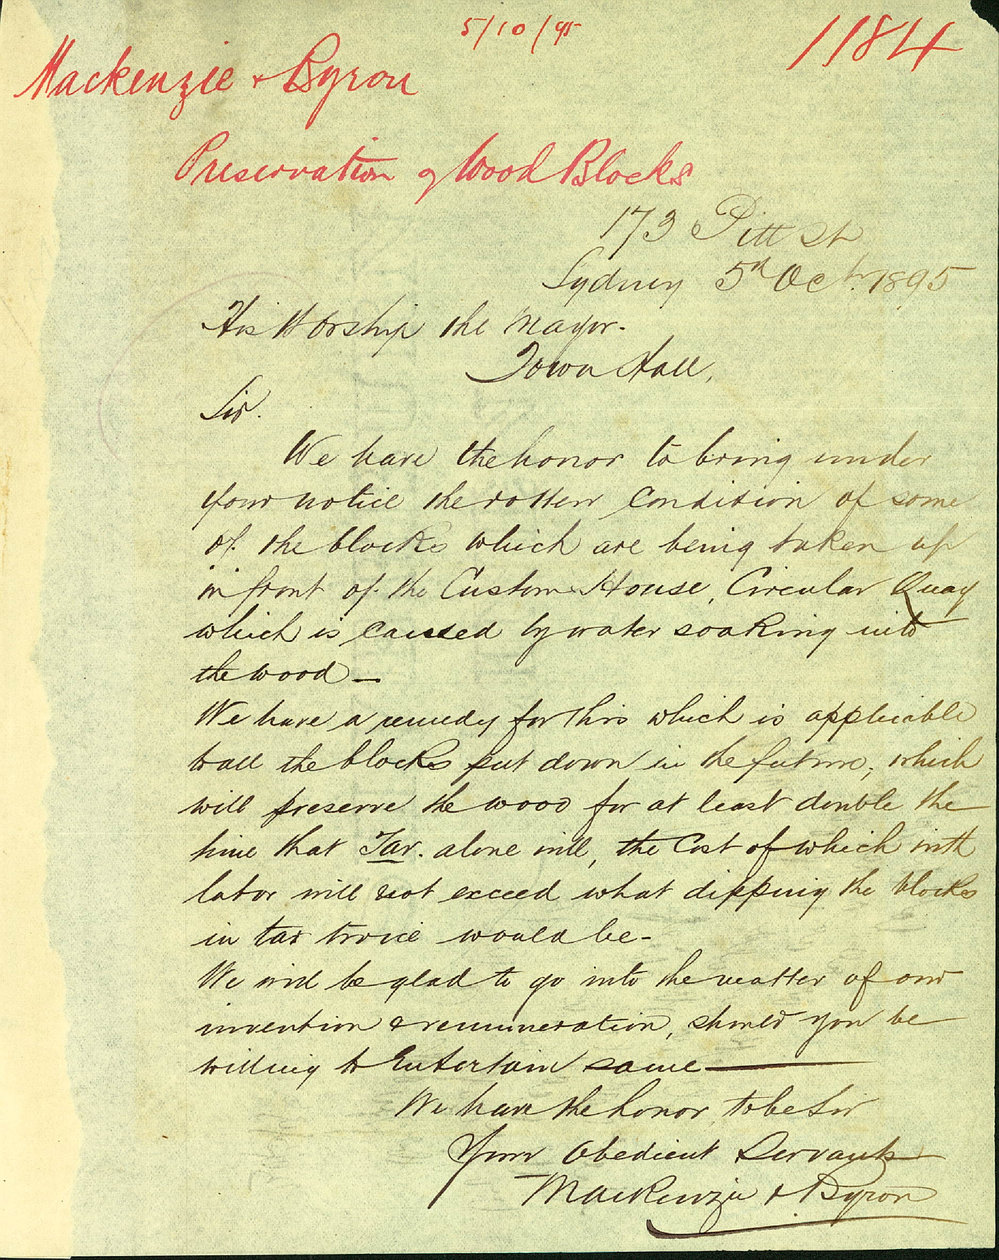 5/10/95
1184
Mackenzie & Byron
Preservation of Wood Blocks
173 Pitt St
Sydney 5th Octr. 1895
His Worship the Mayor.
Town Hall,
Sir.
We have the honor to bring under
your notice the rotten condition of some
of the blocks which are being taken up
in front of the Custom House, Circular Quay
which is caused by water soaking into
the wood —
We have a remedy for this which is applicable
to all the blocks put down in the future, which
will preserve the wood for at least double the
time that Tar. alone will, the Cost of which with
labor will not exceed what dipping the blocks
in tar twice would be -
We will be glad to go into the matter of our
invention & remuneration, should you be
willing to Entertain same —
We have the honor, to be Sir
Your Obedient Servants
Mackenzie & Byron